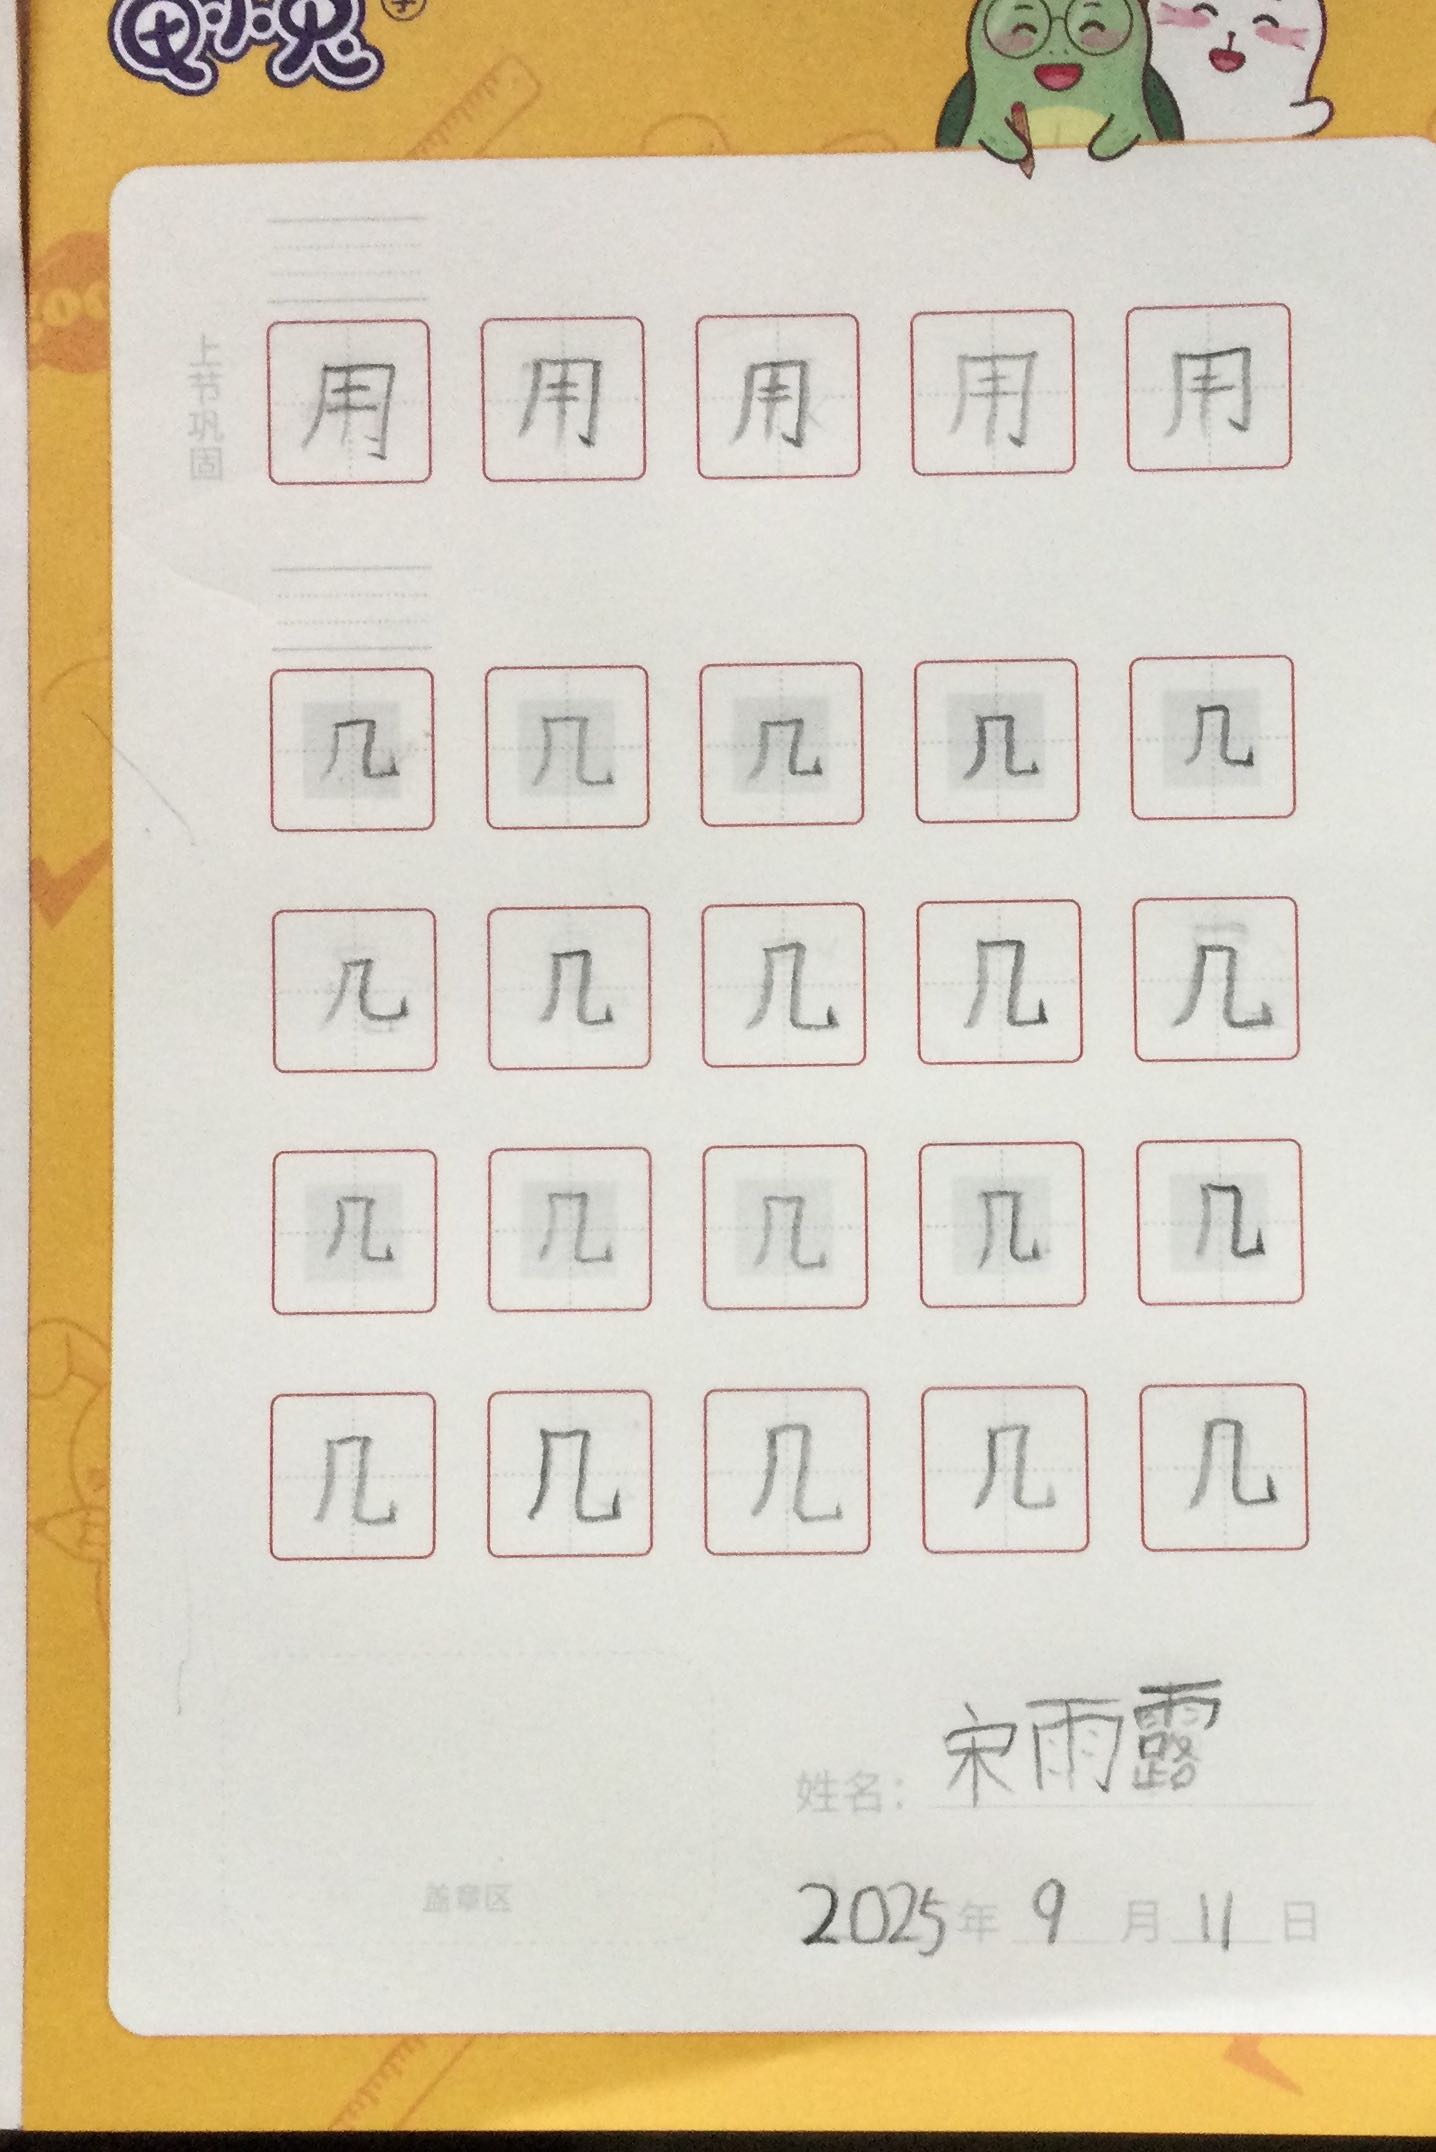 Q小兔
上节巩固
用 用 用 用 用
几 几 几 几 几
几 几 几 几 几
几 几 几 几 几
几 几 几 几 几
姓名：宋雨露
盖章区
2025年 9 月 11 日